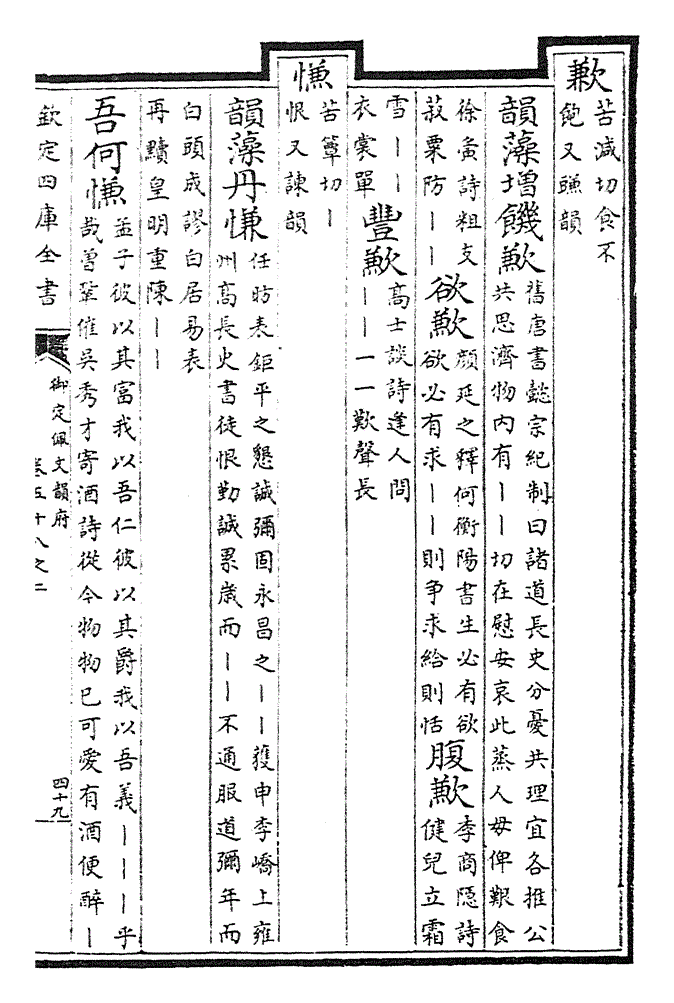 歉
苦減切食不
飽又豏韻
韻藻增饑歉
舊唐書懿宗紀制曰諸道長史分憂共理宜各推公
共思濟物内有丨丨切在慰安哀此蒸人毋俾艱食
徐夤詩粗支
菽粟防丨丨
欲歉
顔延之釋何衡陽書生必有欲
欲必有求丨丨則争求給則恬
腹歉
李商隠詩
健兒立霜
雪丨丨
衣裳單
豐歉
高士談詩逢人問
丨丨一一歎聲長
慊
苦簟切丨
恨又諫韻
韻藻丹慊
任昉表鉅平之懇誠彌固永昌之丨丨獲申李嶠上雍
州高長史書徒恨勤誠累嵗而丨丨不通服道彌年而
白頭成謬白居易表
再黷皇明重陳丨丨
吾何慊
孟子彼以其富我以吾仁彼以其爵我以吾義丨丨丨乎
哉曽鞏催吳秀才寄酒詩從今物物已可愛有酒便醉丨
欽定四庫全書
御定佩文韻府
卷五十八之二
四十九